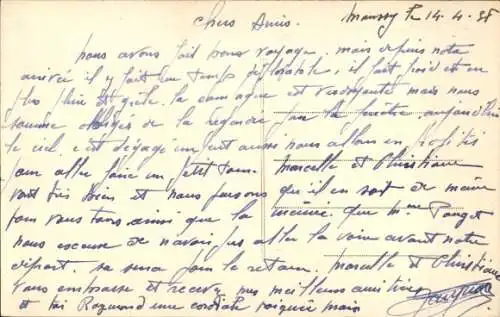 Chers Amis. Maussy le 14-4-58
nous avons fait bons voyage, mais depuis notre
arrivée il y fait un temp déplorable, il fait froid et en
plus pluie et grêle. la campagne et verdoyante mais nous
somme obligés de la regarder par la fenêtre aujourd'hui
le ciel c'est dégagé un peut aussi nous allons en profités
pour aller faire un petit tour. Marcelle et Christiane
vont très bien et nous pensons qu'il en soit de même
pour vous tous ainsi que la mémé. que Mme Pouget
nous escuse de n'avoir pas aller la voir avant notre
départ. sa sera pour le retour. Marcelle et Christiane
vous embrasse et recevez mes meilleurs amitiés
et toi Raymond une cordiale poignée main